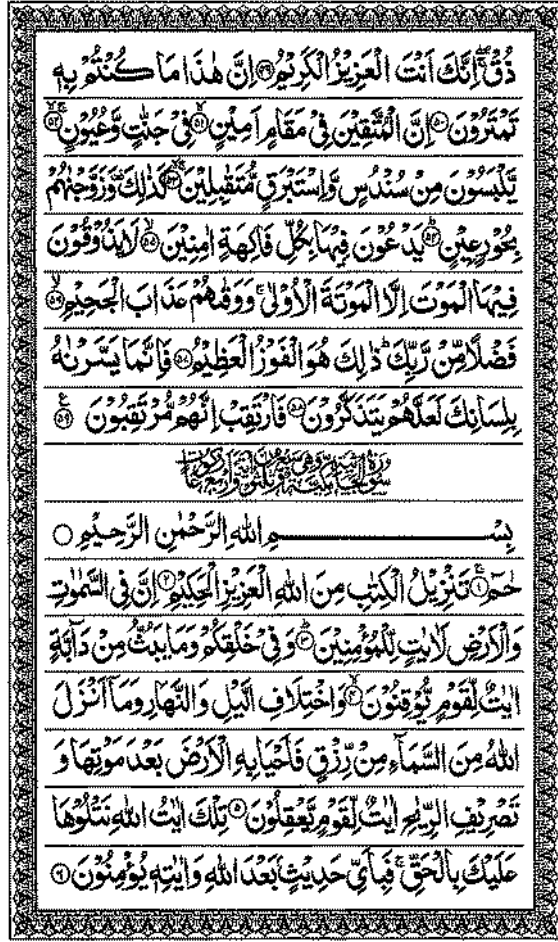 ذُقْ ۚۙ اِنَّكَ اَنْتَ الْعَزِیْزُ الْكَرِیْمُ ﴿۴۹﴾ اِنَّ هٰذَا مَا كُنْتُمْ بِهٖ
تَمْتَرُوْنَ ﴿۵۰﴾ اِنَّ الْمُتَّقِیْنَ فِیْ مَقَامٍ اَمِیْنٍ ﴿۵۱﴾ فِیْ جَنّٰتٍ وَّعُیُوْنٍ ﴿۵۲﴾
یَّلْبَسُوْنَ مِنْ سُنْدُسٍ وَّاِسْتَبْرَقٍ مُّتَقٰبِلِیْنَ ﴿۵۳﴾ كَذٰلِكَ ۫ وَزَوَّجْنٰهُمْ
بِحُوْرٍ عِیْنٍ ﴿۵۴﴾ یَدْعُوْنَ فِیْهَا بِكُلِّ فَاكِهَةٍ اٰمِنِیْنَ ﴿۵۵﴾ لَا یَذُوْقُوْنَ
فِیْهَا الْمَوْتَ اِلَّا الْمَوْتَةَ الْاُوْلٰی ۚ وَوَقٰىهُمْ عَذَابَ الْجَحِیْمِ ﴿۵۶﴾
فَضْلًا مِّنْ رَّبِّكَ ؕ ذٰلِكَ هُوَ الْفَوْزُ الْعَظِیْمُ ﴿۵۷﴾ فَاِنَّمَا یَسَّرْنٰهُ
بِلِسَانِكَ لَعَلَّهُمْ یَتَذَكَّرُوْنَ ﴿۵۸﴾ فَارْتَقِبْ اِنَّهُمْ مُّرْتَقِبُوْنَ ﴿۵۹﴾
بِسْمِ اللهِ الرَّحْمٰنِ الرَّحِیْمِ
حٰمٓ ﴿۱﴾ تَنْزِیْلُ الْكِتٰبِ مِنَ اللهِ الْعَزِیْزِ الْحَكِیْمِ ﴿۲﴾ اِنَّ فِی السَّمٰوٰتِ
وَالْاَرْضِ لَاٰیٰتٍ لِّلْمُؤْمِنِیْنَ ﴿۳﴾ وَفِیْ خَلْقِكُمْ وَمَا یَبُثُّ مِنْ دَآبَّةٍ
اٰیٰتٌ لِّقَوْمٍ یُّوْقِنُوْنَ ﴿۴﴾ وَاخْتِلَافِ الَّیْلِ وَالنَّهَارِ وَمَاۤ اَنْزَلَ
اللهُ مِنَ السَّمَآءِ مِنْ رِّزْقٍ فَاَحْیَا بِهِ الْاَرْضَ بَعْدَ مَوْتِهَا وَ
تَصْرِیْفِ الرِّیٰحِ اٰیٰتٌ لِّقَوْمٍ یَّعْقِلُوْنَ ﴿۵﴾ تِلْكَ اٰیٰتُ اللهِ نَتْلُوْهَا
عَلَیْكَ بِالْحَقِّ ۚ فَبِاَیِّ حَدِیْثٍۭ بَعْدَ اللهِ وَاٰیٰتِهٖ یُؤْمِنُوْنَ ﴿۶﴾